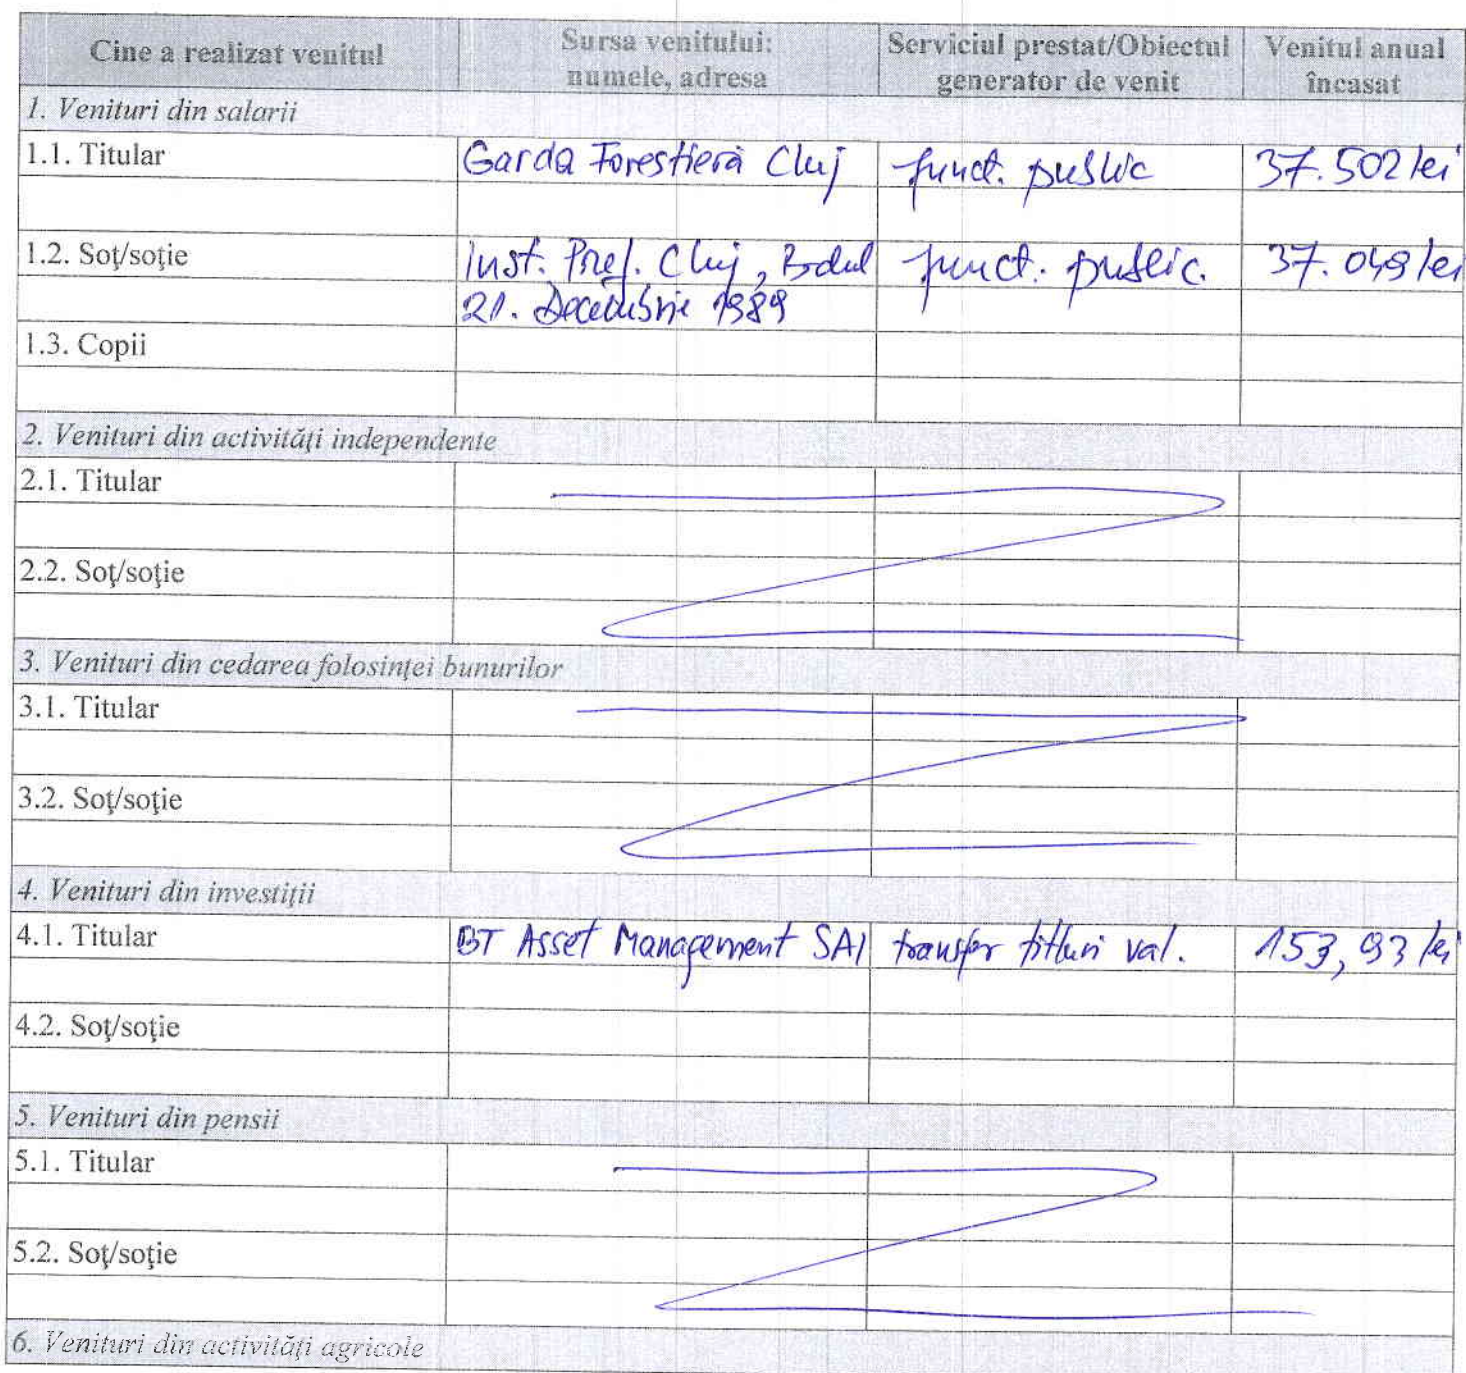 Cine a realizat venitul
Sursa venitului:
numele, adresa
Serviciul prestat/Obiectul
generator de venit
Venitul anual
încasat
1. Venituri din salarii
1.1. Titular Garda Forestieră Cluj funct. public 37.502 lei
1.2. Soţ/soţie Inst. Pref. Cluj, B-dul funct. public. lei
21. Decembrie 1989
1.3. Copii
2. Venituri din activităţi independente
2.1. Titular
2.2. Soţ/soţie
3. Venituri din cedarea folosinţei bunurilor
3.1. Titular
3.2. Soţ/soţie
4. Venituri din investiţii
4.1. Titular BT Asset Management SAI transfer titluri val. 153,93 lei
4.2. Soţ/soţie
5. Venituri din pensii
5.1. Titular
5.2. Soţ/soţie
6. Venituri din activităţi agricole